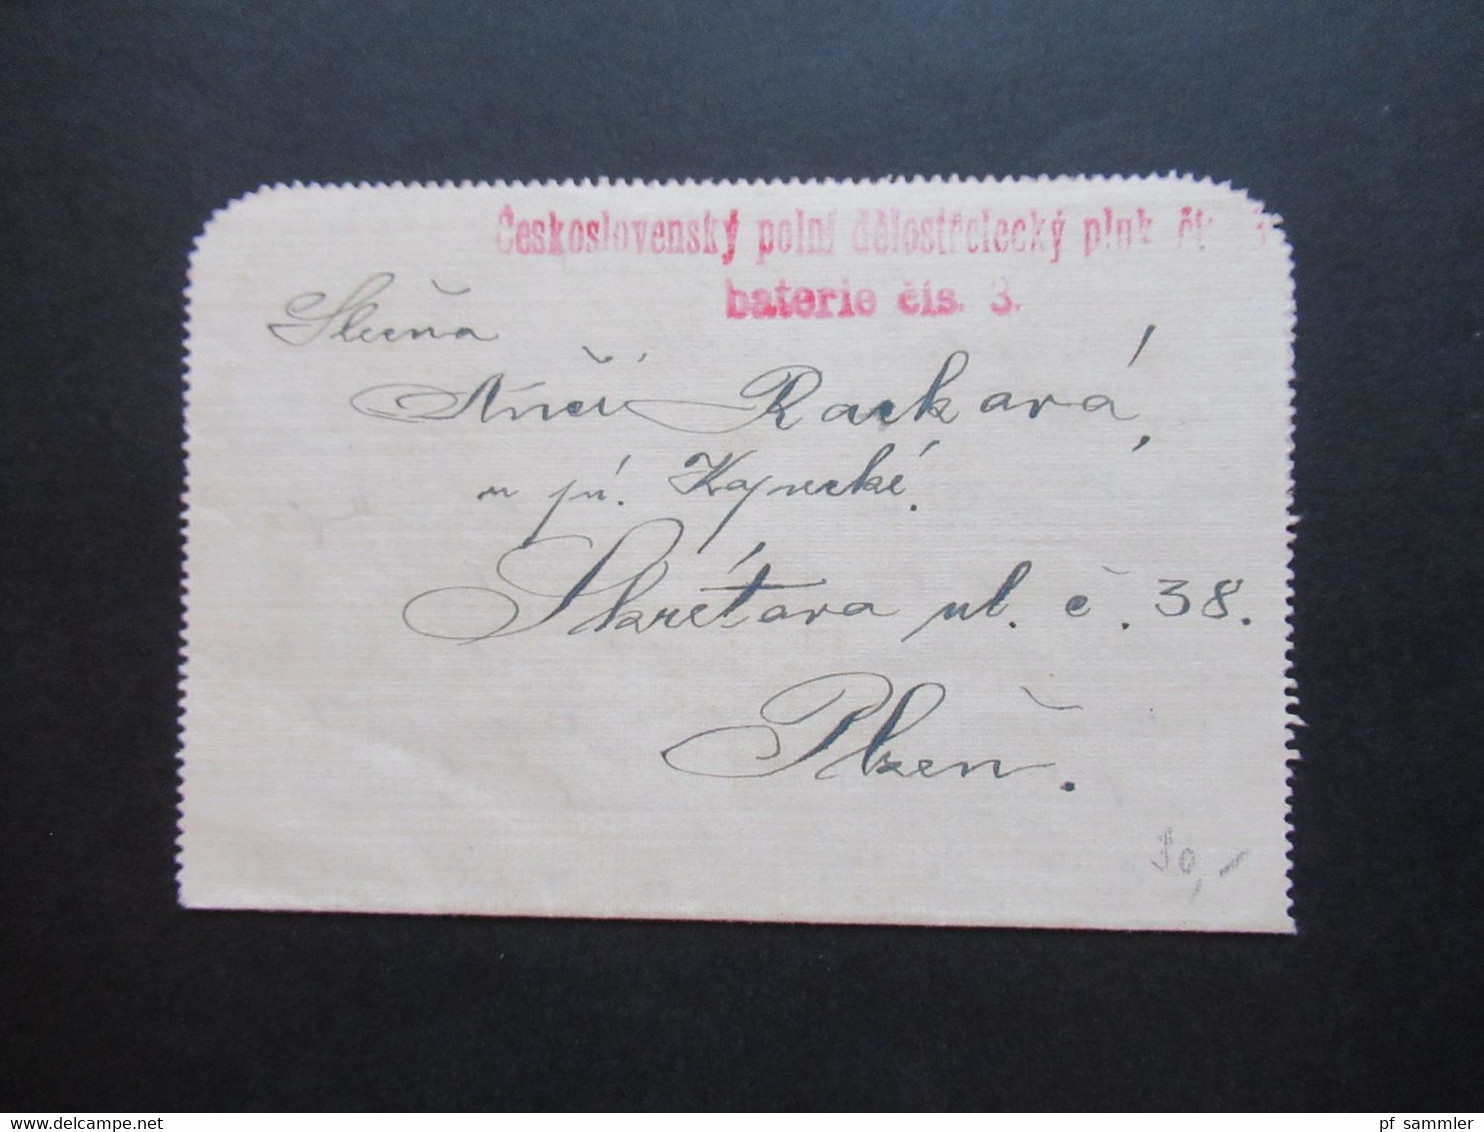 Československý polní dělostřelecký pluk
baterie čís. 3.
Slečna
Anči Racková,
u pí.
Skrétova ul. č. 38.
Plzeň.
30,-
www.delcampe.net
pf_sammler